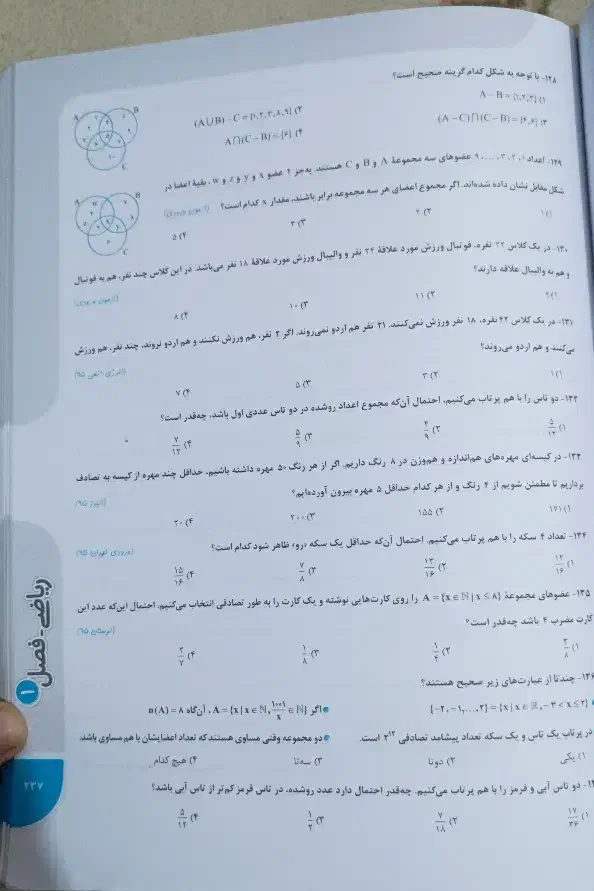 ۱۲۸- با توجه به شکل کدام گزینه صحیح است؟
۱) A − B = {۱,۲,۳}
۲) (A∪B) − C = {۱,۲,۳,۸,۹}
۳) (A−C)∩(C−B) = {۴,۶}
۴) A∩(C−B) = {۶}
A B C
۱۲۹- اعداد ۱، ۲، ۳، ...، ۹ عضوهای سه مجموعهٔ A و B و C هستند. به‌جز ۴ عضو x و y و z و w، بقیهٔ اعضا در
شکل مقابل نشان داده شده‌اند. اگر مجموع اعضای هر سه مجموعه برابر باشند، مقدار x کدام است؟
۱) ۱ ۲) ۲ ۳) ۳ ۴) ۵
A B C
۱۳۰- در یک کلاس ۳۲ نفره، فوتبال ورزش مورد علاقهٔ ۲۴ نفر و والیبال ورزش مورد علاقهٔ ۱۸ نفر می‌باشد. در این کلاس چند نفر، هم به فوتبال
و هم به والیبال علاقه دارند؟
۲) ۱۱ ۳) ۱۰ ۴) ۸
۱۳۱- در یک کلاس ۴۲ نفره، ۱۸ نفر ورزش نمی‌کنند. ۳۱ نفر هم اردو نمی‌روند. اگر ۲ نفر، هم ورزش نکنند و هم اردو نروند، چند نفر، هم ورزش
می‌کنند و هم اردو می‌روند؟
(انرژی اتمی ۹۵)
۱) ۱ ۲) ۳ ۳) ۵ ۴) ۷
۱۳۲- دو تاس را با هم پرتاب می‌کنیم، احتمال آن‌که مجموع اعداد روشده در دو تاس عددی اول باشد، چه‌قدر است؟
۱) ۵/۱۲ ۲) ۴/۹ ۳) ۵/۹ ۴) ۷/۱۲
۱۳۳- در کیسه‌ای مهره‌های هم‌اندازه و هم‌وزن در ۸ رنگ داریم. اگر از هر رنگ ۵۰ مهره داشته باشیم، حداقل چند مهره از کیسه به تصادف
برداریم تا مطمئن شویم از ۴ رنگ و از هر کدام حداقل ۵ مهره بیرون آورده‌ایم؟
(البرز ۹۵)
۱) ۱۷۱ ۲) ۱۵۵ ۳) ۲۰۰ ۴) ۲۰
۱۳۴- تعداد ۴ سکه را با هم پرتاب می‌کنیم. احتمال آن‌که حداقل یک سکه «رو» ظاهر شود کدام است؟
(ورودی تهران ۹۵)
۱) ۱۲/۱۶ ۲) ۱۳/۱۶ ۳) ۷/۸ ۴) ۱۵/۱۶
۱۳۵- عضوهای مجموعهٔ A = {x∈ℕ | x ≤ ۸} را روی کارت‌هایی نوشته و یک کارت را به طور تصادفی انتخاب می‌کنیم. احتمال این‌که عدد این
کارت مضرب ۴ باشد چه‌قدر است؟
(لرستان ۹۵)
۱) ۳/۸ ۲) ۱/۴ ۳) ۱/۸ ۴) ۲/۷
۱۳۶- چندتا از عبارت‌های زیر صحیح هستند؟
{−۲, −۱, ..., ۲} = {x | x∈ℝ, −۳ < x ≤ ۲}
● اگر A = {x | x∈ℕ, ۱۰۰۱/x ∈ ℕ}، آن‌گاه n(A) = ۸
در پرتاب یک تاس و یک سکه تعداد پیشامد تصادفی ۲^۱۲ است.
● دو مجموعه وقتی مساوی هستند که تعداد اعضایشان با هم مساوی باشد.
۱) یکی ۲) دوتا ۳) سه‌تا ۴) هیچ کدام
دو تاس آبی و قرمز را با هم پرتاب می‌کنیم. چه‌قدر احتمال دارد عدد روشده، در تاس قرمز کم‌تر از تاس آبی باشد؟
۱) ۱۷/۳۶ ۲) ۷/۱۸ ۳) ۱/۲ ۴) ۵/۱۲
ریاضی - فصل ۱
۲۳۷